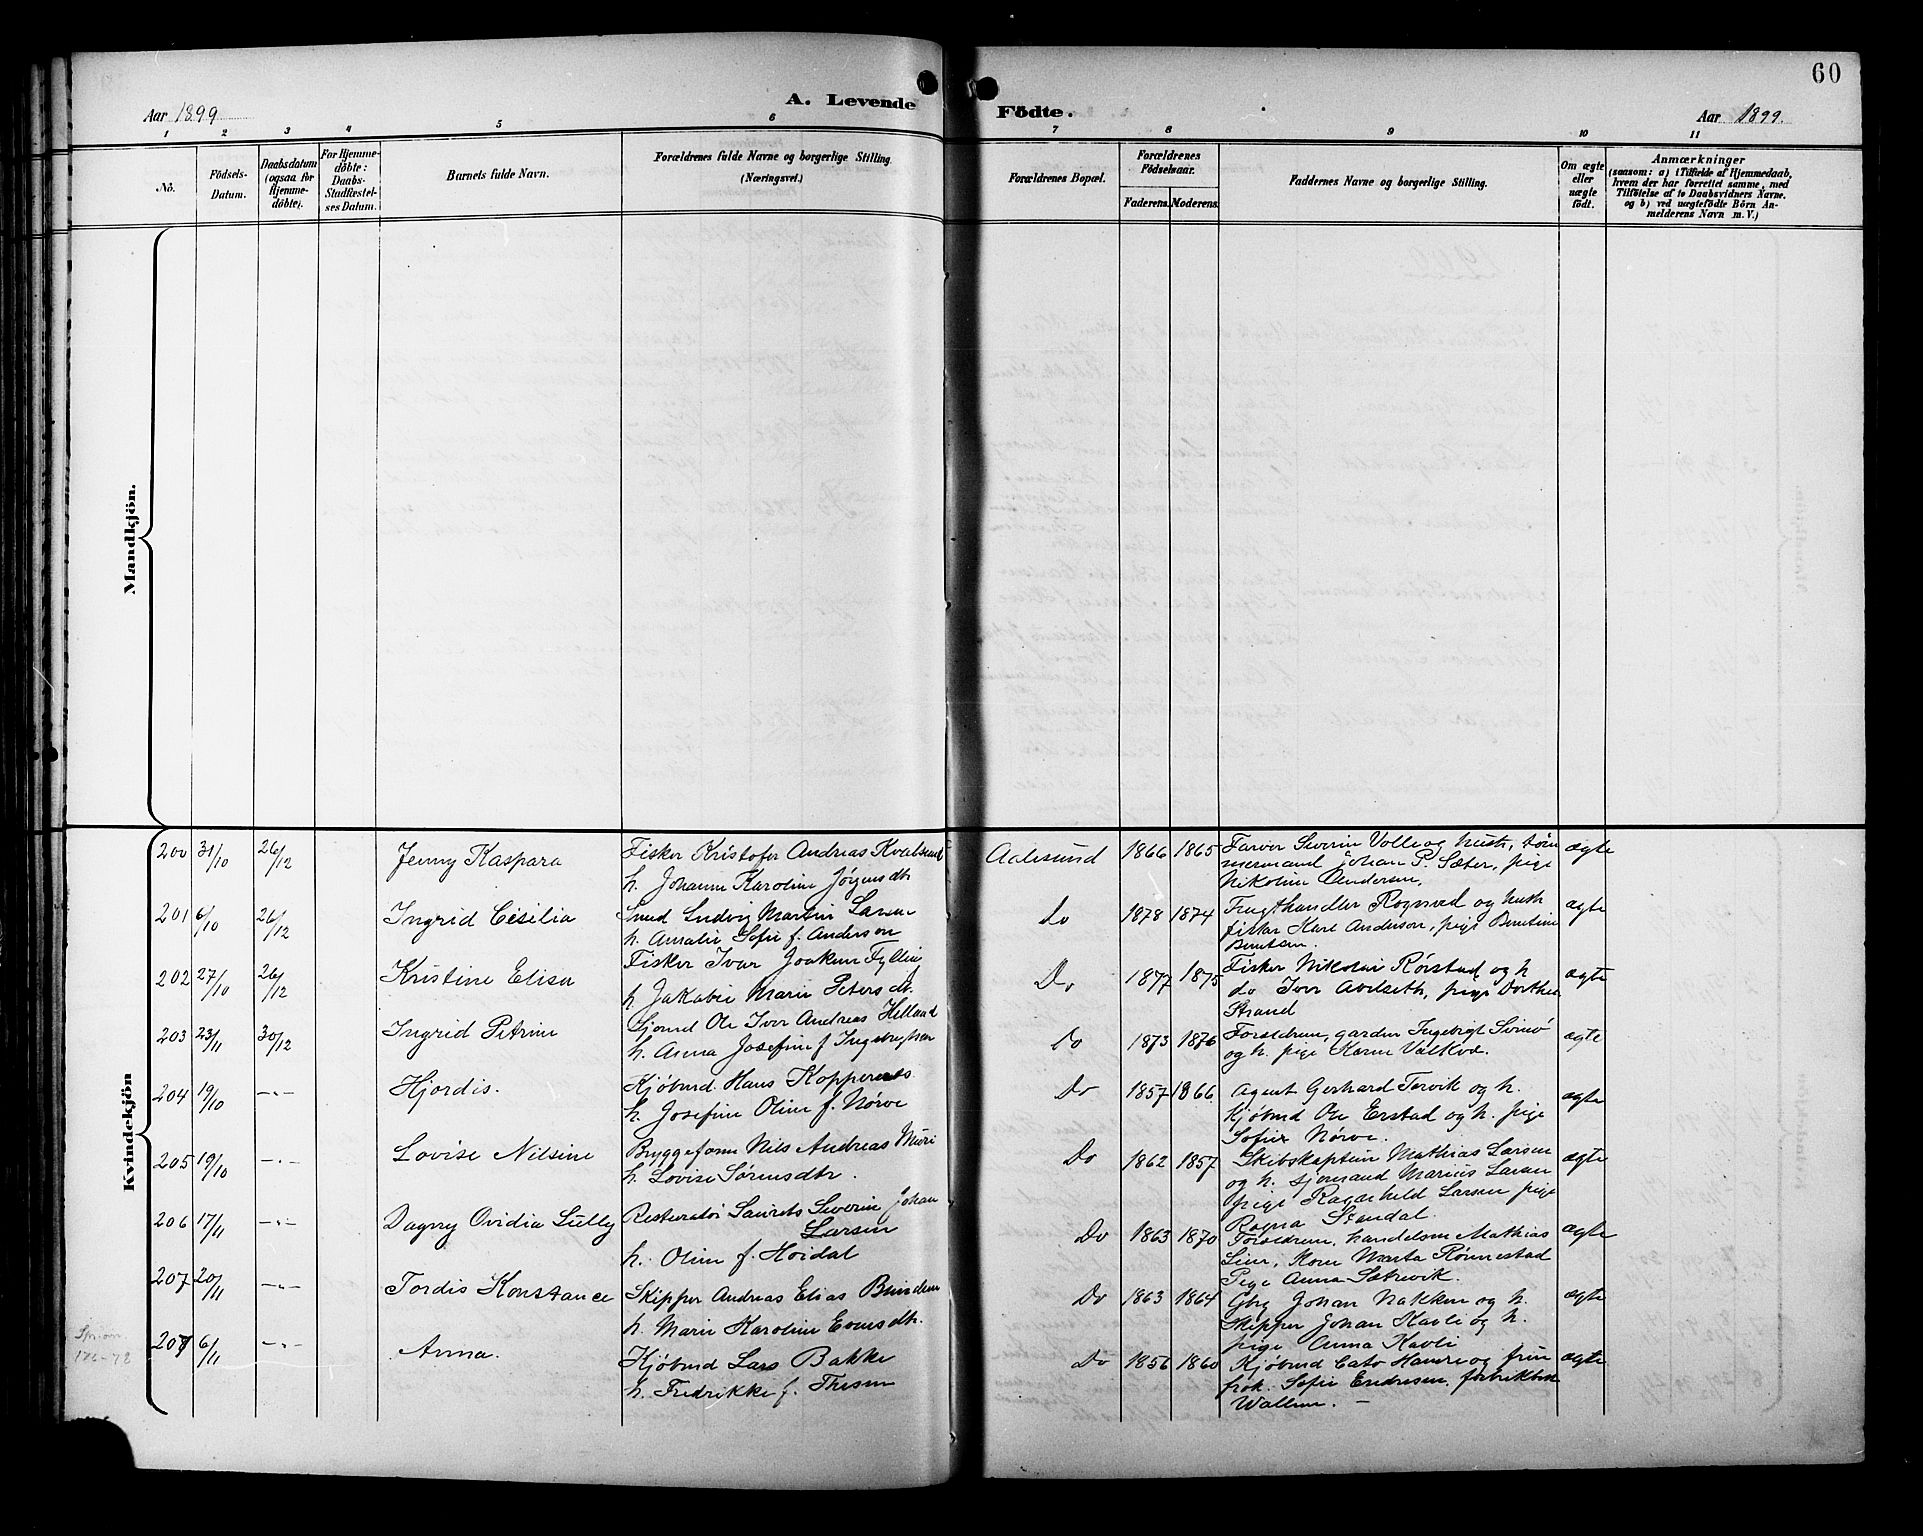 60
Aar 1899
A. Levende
Födte.
Aar 1899.
1 2 3 4 5 6 7 8 9 10 11
Nô.
Födsels-
Datum.
Daabsdatum
(ogsaa for
Hjemme-
döbte).
For Hjemme-
döbte:
Daabs-
Stadfæstel-
ses Datum.
Barnets fulde Navn.
Forældrenes fulde Navne og borgerlige Stilling.
(Næringsvei.)
Forældrenes Bopæl.
Forældrenes
Födselsaar.
Faderens. Moderens.
Faddernes Navne og borgerlige Stilling.
Om ægte
eller
uægte
født.
Anmærkninger
(saasom: a) i Tilfælde af Hjemmedaab,
hvem der har forrettet samme, med
Tilføielse af to Daabsvidners Navne,
og b) ved uægtefødte Börn An-
melderens Navn m. V.)
Mandkjön.
Kvindekjön
200 31/10 26/12 Jenny Kaspara
Fisker Kristofer Andreas Kvalsund
h. Johanne Karoline Jörgensdtr
Aalesund 1866 1865
Farver Severin Volle og hustr, töm
mermand Johan P. Sæter, pige
Nikoline Andersen,
ægte
201 6/10 26/12 Ingrid Cesilia
Smed Ludvig Martin Larsen
h. Amalie Sofie f. Anderson
do 1878 1874
Frugthandler Rognved og hustr
fisker Karl Anderson, pige Berntine
Berntsen.
ægte
202 27/10 26/12 Kristine Elisa
Fisker Ivar Joakim Fylling
h. Jakobie Marie Petersdtr.
Do 1877 1875
Fisker Nikolai Rörstad og h
do Iver Avdseth, pige Dorthea
Strand
ægte
203 23/11 30/12 Ingrid Petrine
Sjömd Ole Iver Andreas Helland
h. Anna Josefine f Ingebrigtsen
Do 1873 1876
Forældrene, garder Ingebrigt Svinö
og h. pige Karen Valkvæ.
ægte
204 19/10 -"- Hjordis.
Kjöbmd. Hans Koppernæs
h. Josefine Oline f. Nörve
Do 1857 1866
Agent Gerhard Torvik og h.
Kjöbmd Ole Erstad og h. pige
Sofie Nörve.
ægte
205 19/10 -"- Lovise Nilsine
Bryggeform Nils Andreas Muri
h. Lovise Sörensdtr.
Do 1862 1857
Skibskaptein Mathias Larsen
og h. sjömand Marius Larsen
pige Ragnhild Larsen pige
Ragna Standal.
ægte
206 17/11 -"- Dagny Ovidia Sully
Restauratör Laurets Severin Johan
Larsen
h. Oline f. Hoidal
Do 1863 1870
Forældrene, handelsm Mathias
Lien, Kone Marta Rönnestad
Pige Anna Sætrevik.
ægte
207 20/11 -"- Tordis Konstance
Skipper Andreas Elias
h. Marie Karoline Evensdtr.
Do 1863 1864
Gbg Johan Nakken og h.
Skipper Johan Kavli og h.
pige Anna Kavli
ægte
208 6/11 -"- Anna.
Kjöbmd Lars Bakke
h. Fredrikke f. Thesen
Do 1856 1860
Kjöbmd Cato Hamre og frue
frøk. Sofie Endresen,
Wallem. —
ægte
176-78